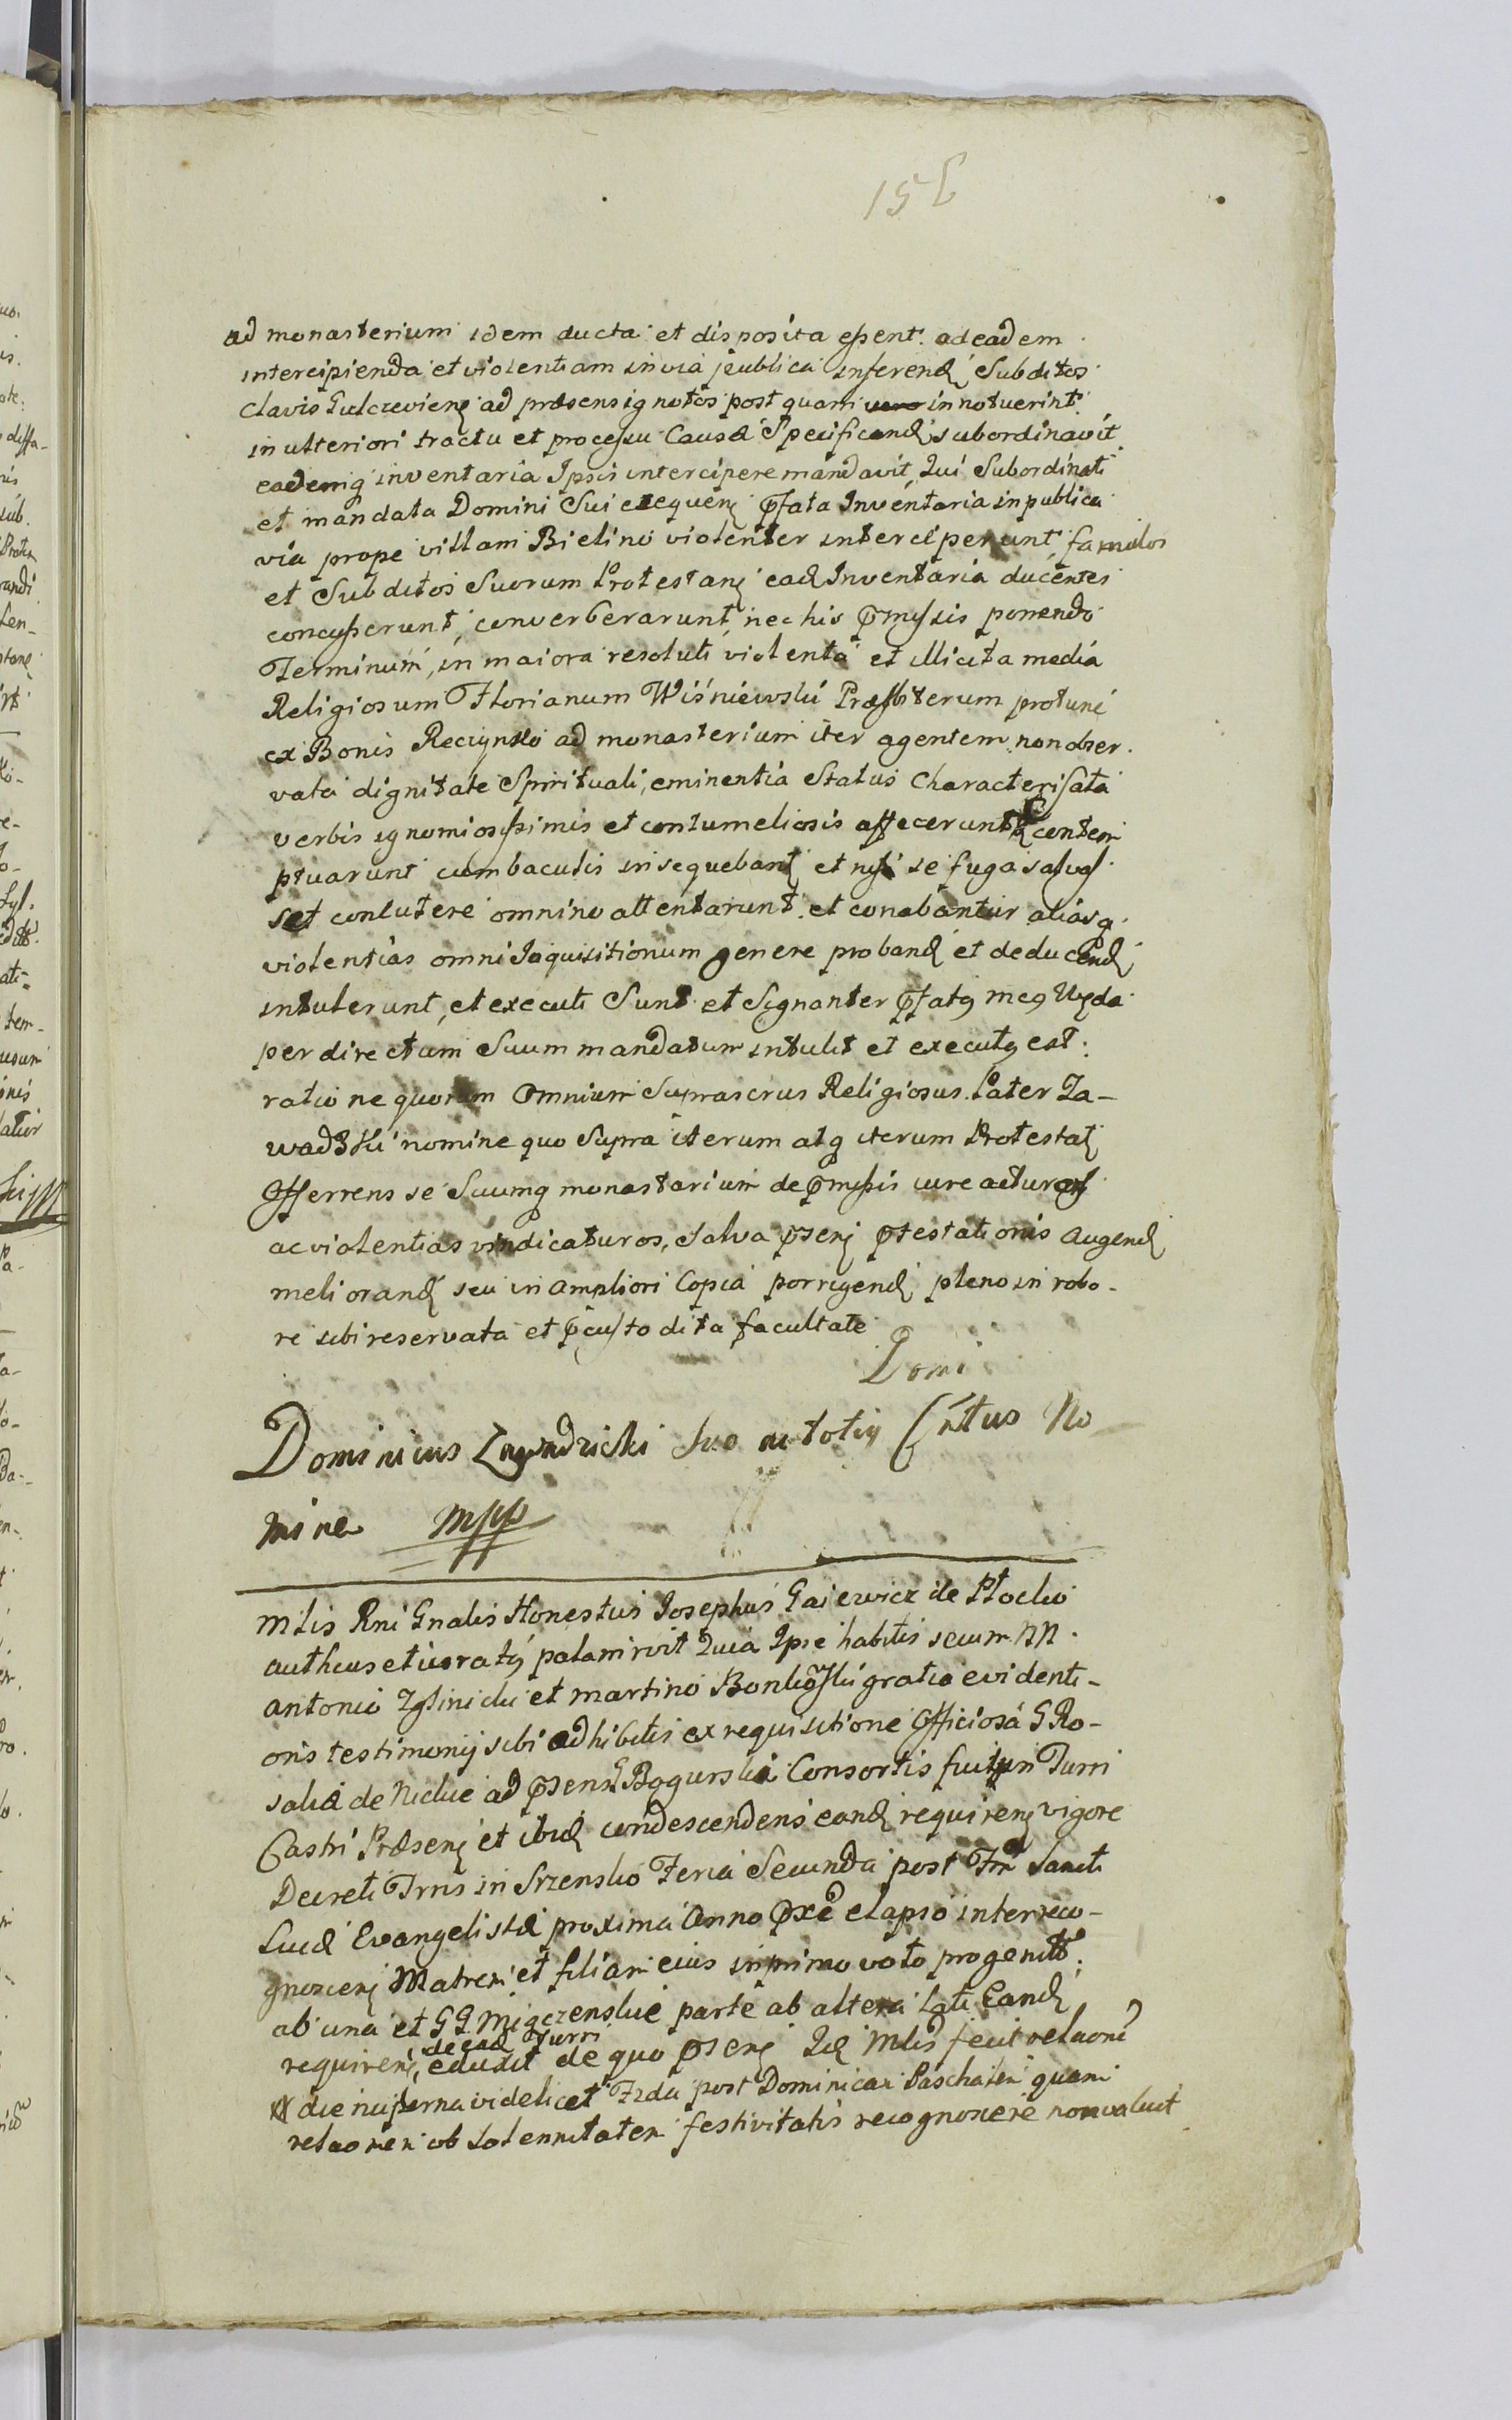 156
ad monasterium idem ducta et disposita essent. ad eadem
intercipienda et violentiam in via publica inferend Subditos
Clavis Gulczeviens ad præsens ignotos post quam vero innotuerint
in ulteriori tractu et processu Causæ Specificand subordinavit
eademq inventaria Ipsis intercipere mandavit, Qui Subordinati
et mandata Domini Sui exequens pfata Inventaria in publica
via prope villam Bielino violenter interceperunt, famulos
et Subditos Suorum Protestans ead Inventaria ducentes
concusserunt, converberarunt, nec his pmissis ponendo
Terminum, in maiora resoluti violenta et illicita media
Religiosum Florianum Wiśniewski Præsbiterum protunc
ex Bonis Reciynsko ad monasterium iter agentem non obser.
vata dignitate Spirituali, eminentia Status Characterisata
verbis ignomiosissimis et contumeliosis affecerunt et contem
ptuarunt cum baculis insequebant et nisi se fuga salvas
set conlutere omnino attentarunt et conabantur aliasq
violentias omni Inquisitionum genere proband et deducend
intulerunt, et executi Sunt et Signanter pfatg mcg Uzda
per directum Suum mandatum intulit et executg est.
ratione quorum Omnium Suprascrus Religiosus Pater Za-
wadzki nomine quo Supra iterum atq iterum Protestat
Offerrens se Suumq monastarium de pmissis iure acturos
ac violentias vindicaturos, Salva psens ptestationis augend
meliorand seu in ampliori Copia porrigend pleno in robo-
re sibi reservata et pcustodita facultate
Domi
Dominicus Zawadzicki suo ac totig Cntus No
mine mpp
Mtis Rni Gnalis Honestus Josephus Gaiewicz de Plocko
autheus et iuratg palam rvit Quia Ipse habitis secum NN.
Antonio Zglinicki et Martino Bonkowski gratia evidenti-
oris testimonij sibi adhibitis ex requisitione Officiosa G Ro-
salia de Nickie ad psens G Bogurska Consortis fuit in Turri
Castri Præsens et ibid condescendens eand requirens vigore
Decreti Trns in Srzensko Feria Secunda post Fm Sancti
Lucæ Evangelistæ proxima Anno pxe elapso inter reco-
gnoscens Matrem et filiam eius in primo voto progenit
ab una et GG Miączenskie parte ab altera Lati Eand
de ead Turri
requirens, eduxit de quo psens Id Mtis fecit relaone
die nuperna videlicet Frda post Dominicam Paschalem quam
relaonem ob Solennitatem festivitatis recognoscere non valuit